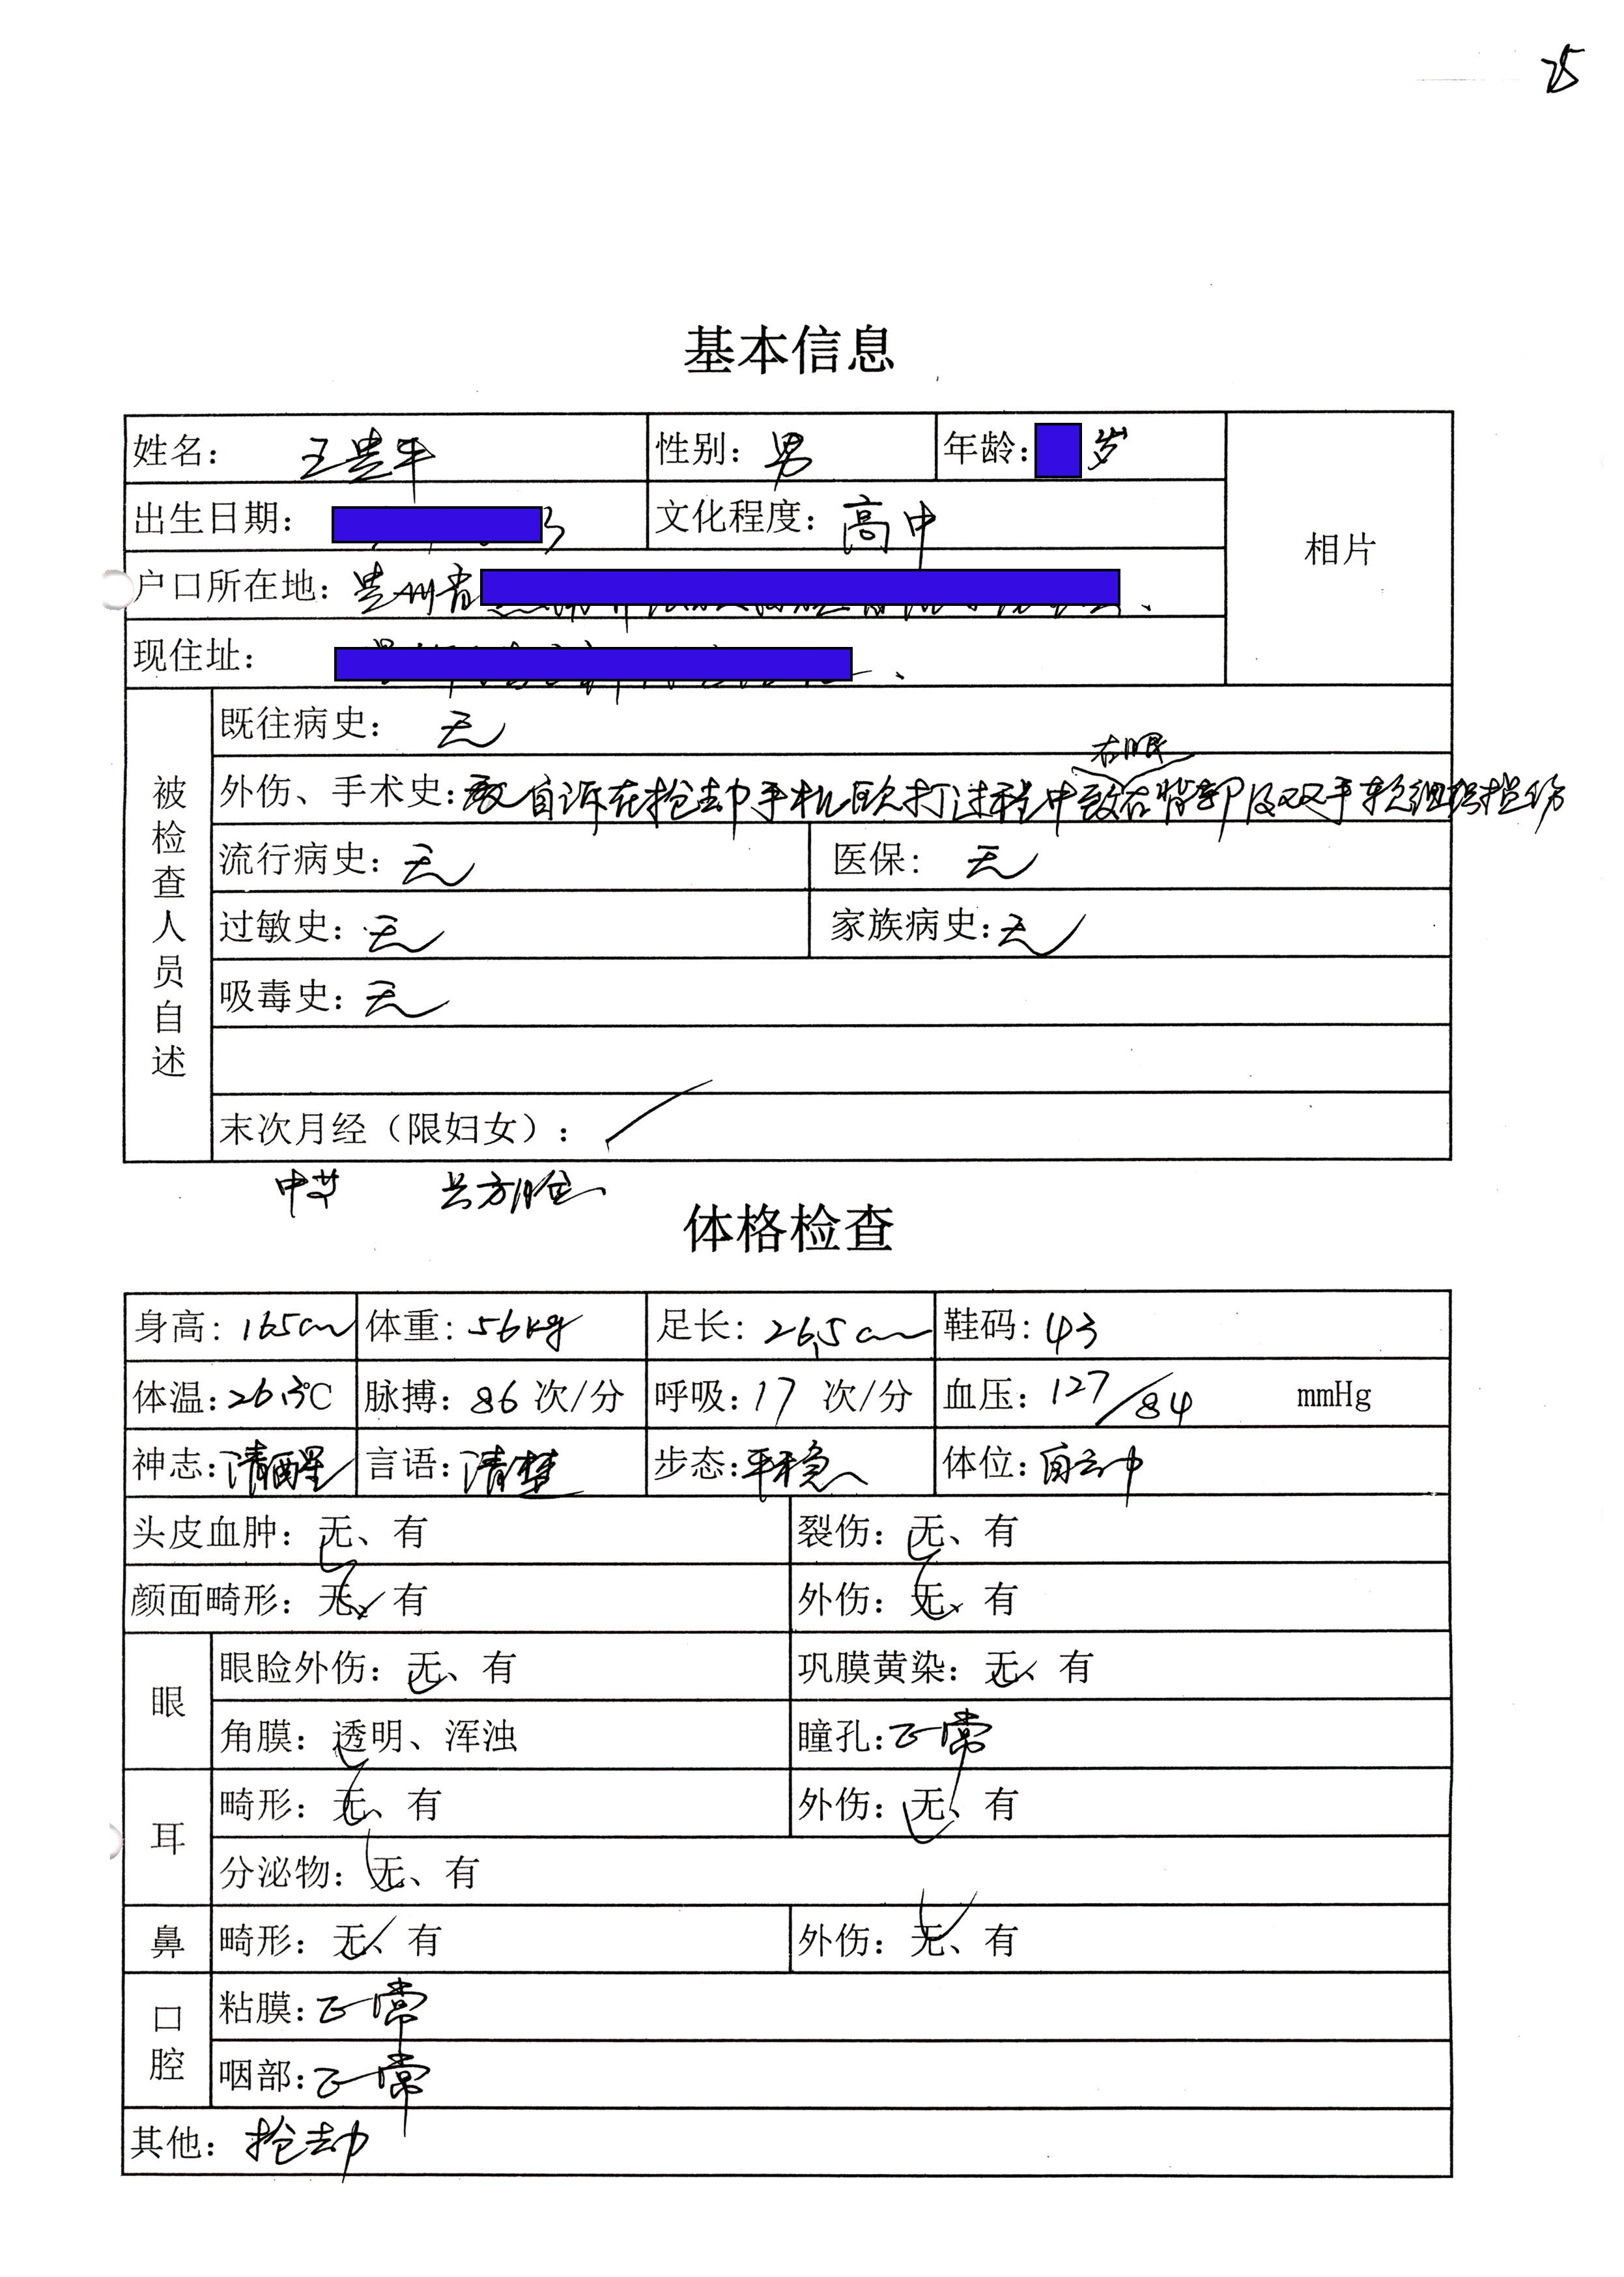 25
基本信息
姓名： 王贵平 性别：男 年龄： 岁
出生日期： 文化程度：高中
相片
户口所在地：贵州省
现住址：
被检查人员自述
既往病史： 无
右眼
外伤、手术史：自诉在抢劫手机殴打过程中致右背部及双手软组织挫伤
流行病史：无 医保： 无
过敏史：无 家族病史：无
吸毒史：无
末次月经（限妇女）：
体格检查
身高：165cm 体重：56kg 足长：26.5cm 鞋码：43
体温：26.3℃ 脉搏：86 次/分 呼吸：17 次/分 血压：127/84 mmHg
神志：清醒 言语：清楚 步态：平稳 体位：自主
头皮血肿：无、有 裂伤：无、有
颜面畸形：无、有 外伤：无、有
眼
眼睑外伤：无、有 巩膜黄染：无、有
角膜：透明、浑浊 瞳孔：正常
耳
畸形：无、有 外伤：无、有
分泌物：无、有
鼻 畸形：无、有 外伤：无、有
口腔
粘膜：正常
咽部：正常
其他：抢劫